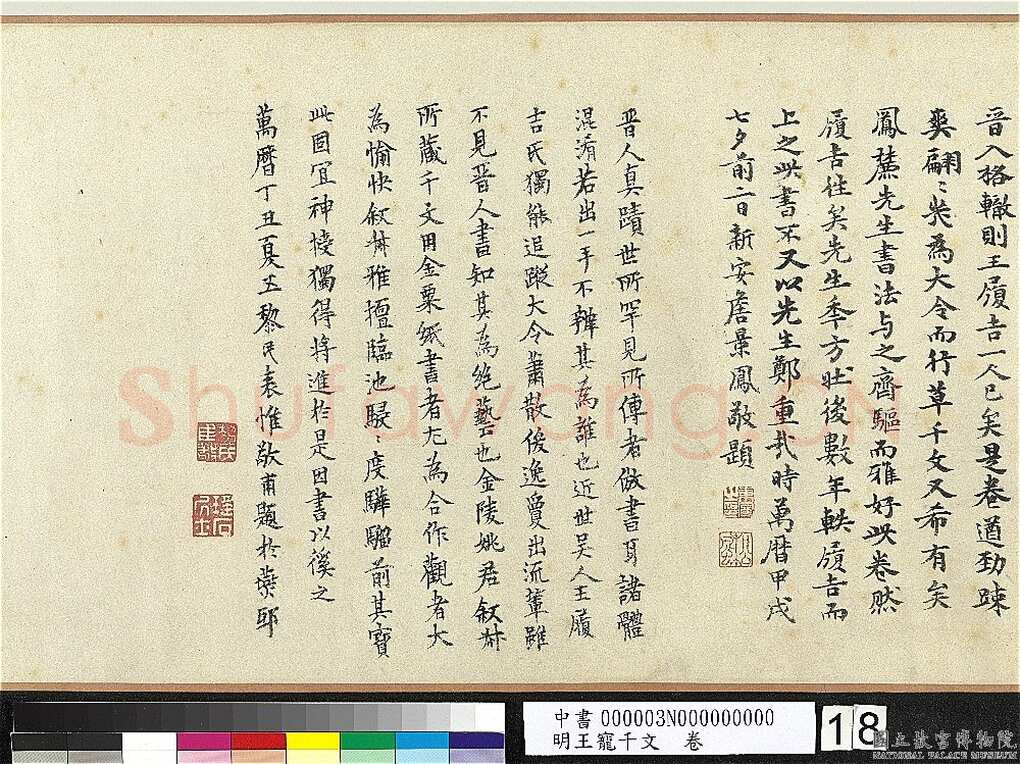 晋入格轍則王履吉一人已矣是卷遒勁踈
爽翩〻光為大令而行草千文又希有矣
鳳麓先生書法与之齊驅而雅好此卷然
履吉往矣先生季方壮後數年軼履吉而
上之此書不又以先生鄭重哉時萬曆甲戌
七夕前二日新安詹景鳳敬題
晋人真蹟世所罕見所傳者倣書耳諸體
混淆若出一手不辨其為誰也近世吴人王履
吉氏獨能追蹤大令蕭散俊逸夐出流輩雖
不見晋人書知其為絶藝也金陵姚君叙
所藏千文用金粟紙書者尤為合作觀者大
為愉快叙雅擅臨池駸〻度驊騮前其寶
此固宜神接獨得将進於是因書以徯之
萬曆丁丑夏五黎民表惟敬甫題於燕邸
Shufawang.CN
中書 000003N000000000
明王寵千文 卷
18
國立故宮博物院
NATIONAL PALACE MUSEUM